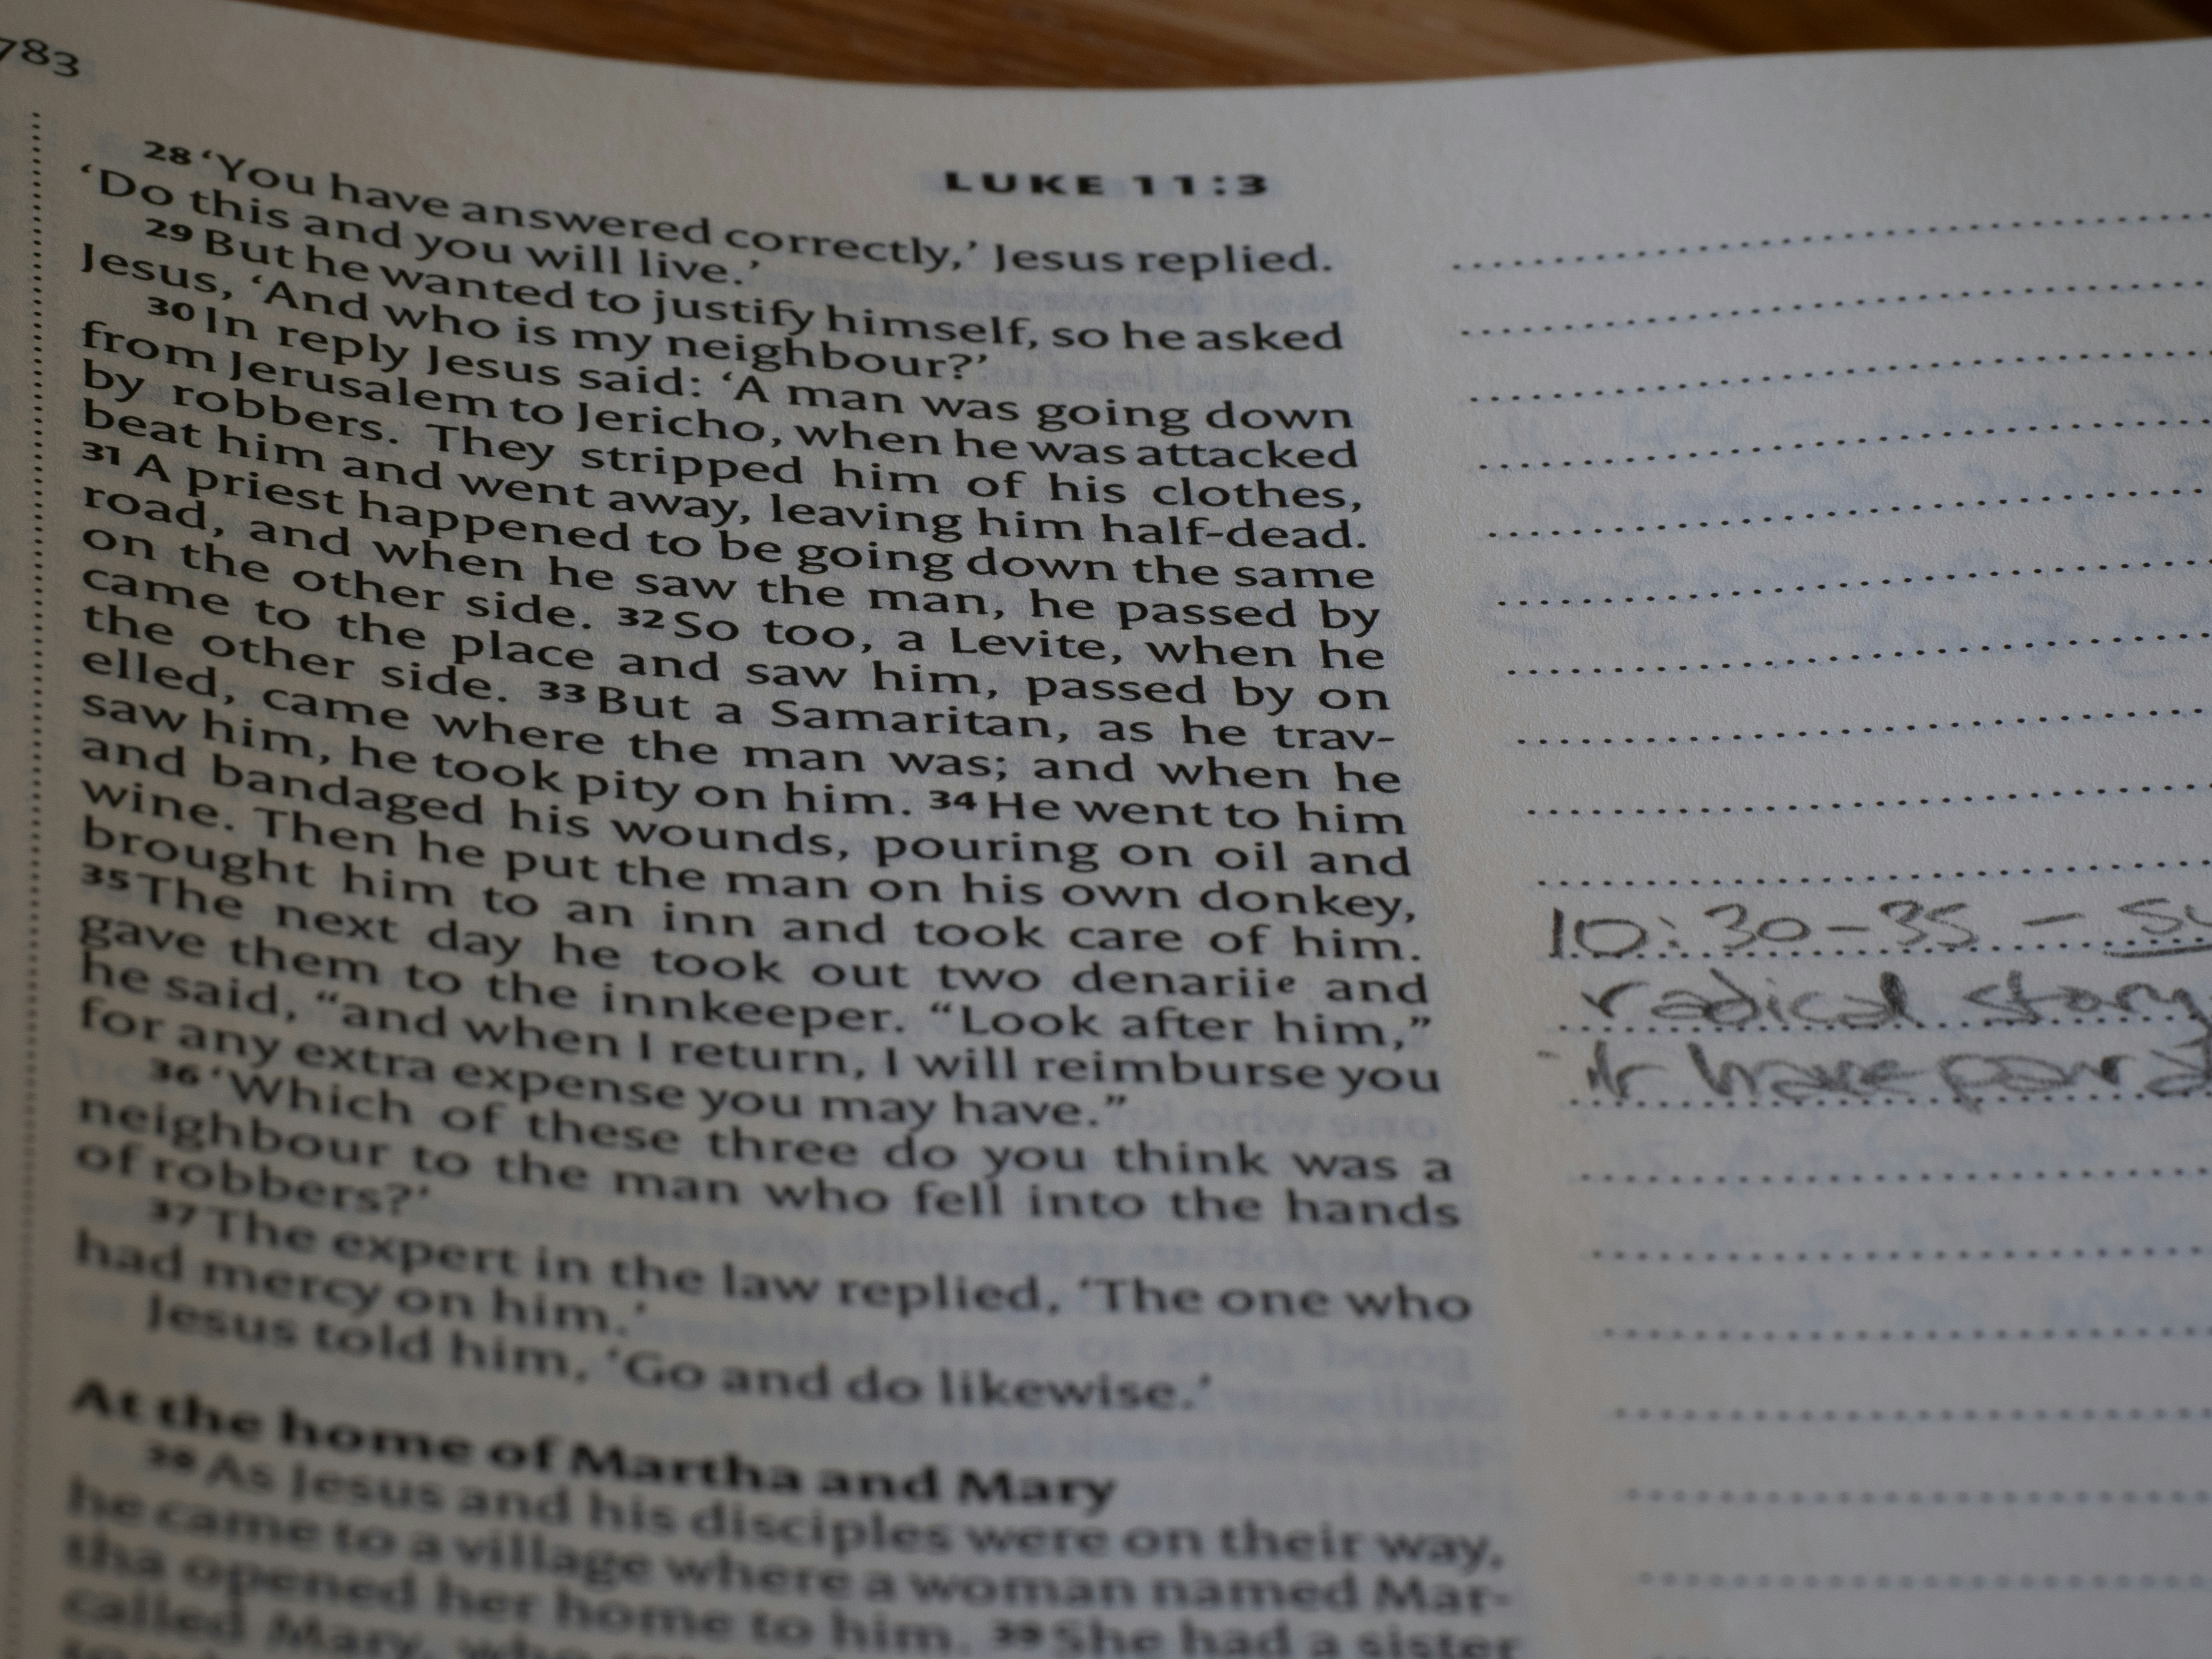 783
LUKE 11:3
28 ‘You have answered correctly,’ Jesus replied.
‘Do this and you will live.’
29 But he wanted to justify himself, so he asked
Jesus, ‘And who is my neighbour?’
30 In reply Jesus said: ‘A man was going down
from Jerusalem to Jericho, when he was attacked
by robbers. They stripped him of his clothes,
beat him and went away, leaving him half-dead.
31 A priest happened to be going down the same
road, and when he saw the man, he passed by
on the other side. 32 So too, a Levite, when he
came to the place and saw him, passed by on
the other side. 33 But a Samaritan, as he trav-
elled, came where the man was; and when he
saw him, he took pity on him. 34 He went to him
and bandaged his wounds, pouring on oil and
wine. Then he put the man on his own donkey,
brought him to an inn and took care of him.
35 The next day he took out two denarii e and
gave them to the innkeeper. “Look after him,”
he said, “and when I return, I will reimburse you
for any extra expense you may have.”
36 ‘Which of these three do you think was a
neighbour to the man who fell into the hands
of robbers?’
37 The expert in the law replied, ‘The one who
had mercy on him.’
Jesus told him, ‘Go and do likewise.’
At the home of Martha and Mary
38 As Jesus and his disciples were on their way,
he came to a village where a woman named Mar-
tha opened her home to him. 39 She had a sister
called Mary, who
10:30-35 -
radical story
have